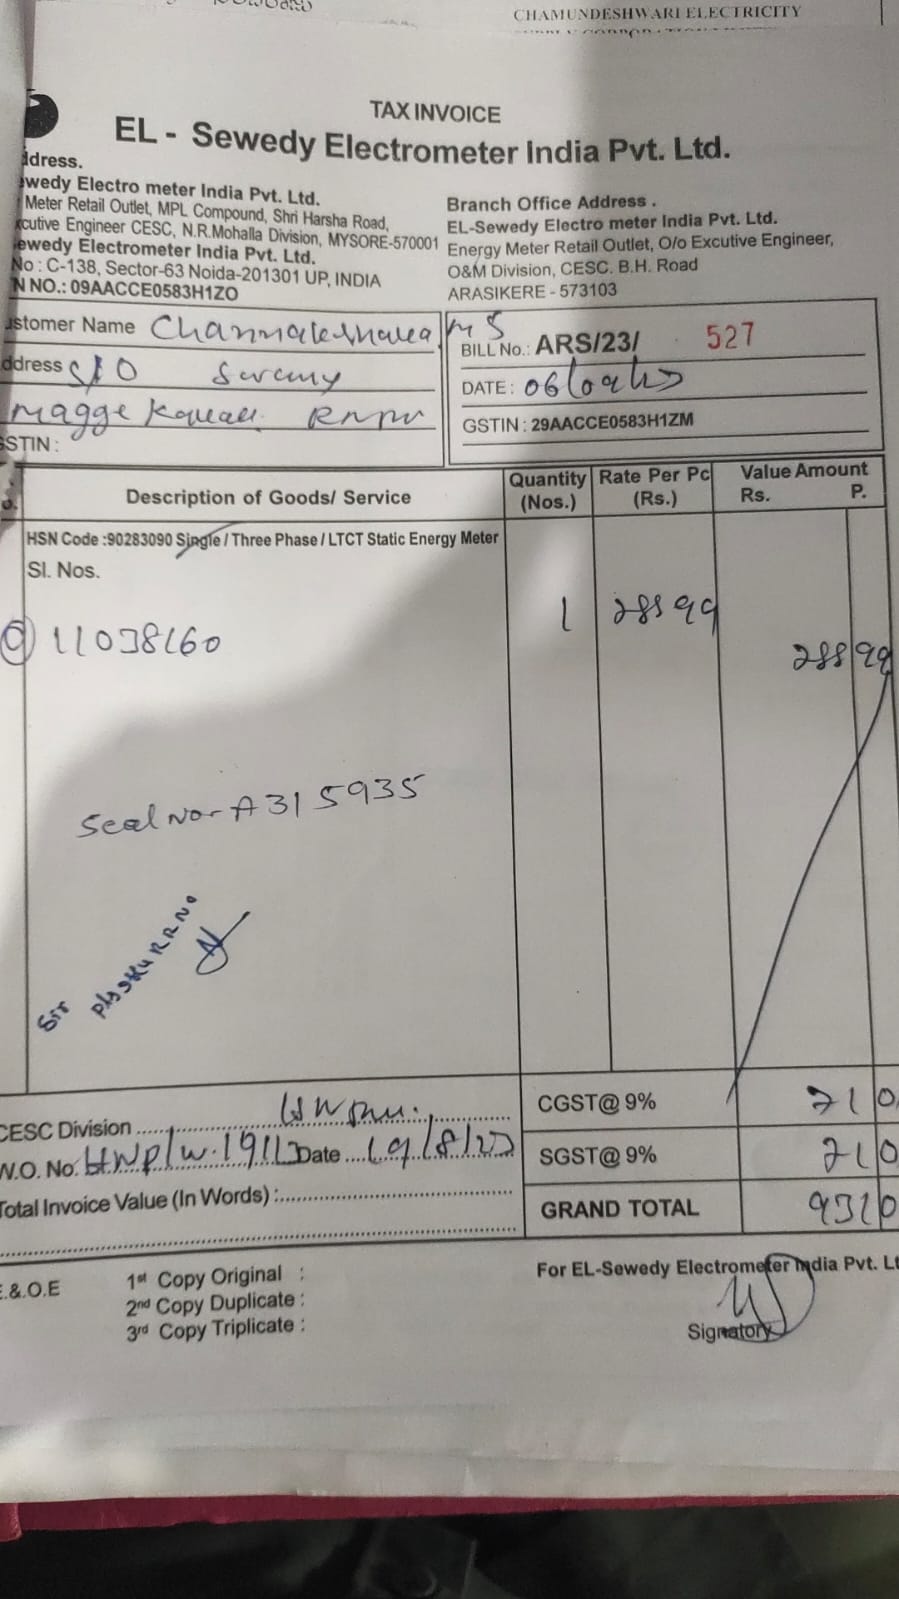 CHAMUNDESHWARI ELECTRICITY
TAX INVOICE
EL - Sewedy Electrometer India Pvt. Ltd.
ddress.
ewedy Electro meter India Pvt. Ltd.
Meter Retail Outlet, MPL Compound, Shri Harsha Road,
xcutive Engineer CESC, N.R.Mohalla Division, MYSORE-570001
ewedy Electrometer India Pvt. Ltd.
No : C-138, Sector-63 Noida-201301 UP, INDIA
N NO.: 09AACCE0583H1ZO
Branch Office Address .
EL-Sewedy Electro meter India Pvt. Ltd.
Energy Meter Retail Outlet, O/o Excutive Engineer,
O&M Division, CESC. B.H. Road
ARASIKERE - 573103
ustomer Name M S
ddress S/O Swamy
magge
GSTIN :
BILL No.: ARS/23/ 527
DATE :
GSTIN : 29AACCE0583H1ZM
o. Description of Goods/ Service Quantity (Nos.) Rate Per Pc (Rs.) Value Amount Rs. P.
HSN Code :90283090 Single / Three Phase / LTCT Static Energy Meter
Sl. Nos.
1
11038160
Seal No- A315935
Sir
CESC Division
W.O. No. Date
Total Invoice Value (In Words) :
CGST@ 9% 210
SGST@ 9% 210
GRAND TOTAL 9310
E.&.O.E
1st Copy Original :
2nd Copy Duplicate :
3rd Copy Triplicate :
For EL-Sewedy Electrometer India Pvt. Lt
Signatory